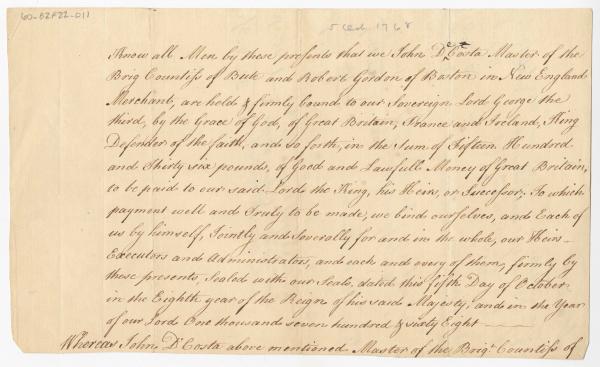 60-02F22-011
5 Oct 1768
Know all Men by these presents that we John D'Costa Master of the
Brig Countiss of Bute and Robert Gordon of Boston in New England
Merchant, are held & firmly bound to our Sovereign Lord George the
third, by the Grace of God, of Great Britain, France and Ireland, King
Defender of the faith, and so forth, in the Sum of Fifteen Hundred
and Thirty six pounds, of Good and Lawfull Money of Great Britain,
to be paid to our said Lord the King, his Heirs, or Successor; To which
payment well and Truly to be made, we bind ourselves, and Each of
us by himself, Jointly and Severally for and in the whole, our Heirs
Executors and Administrators, and each and every of them, firmly by
these presents, Sealed with our Seals, dated this fifth Day of October
in the Eighth year of the Reign of his said Majesty, and in the Year
of our Lord One thousand seven hundred & sixty Eight
Whereas John D'Costa above mentioned Master of the Brigt. Countiss of